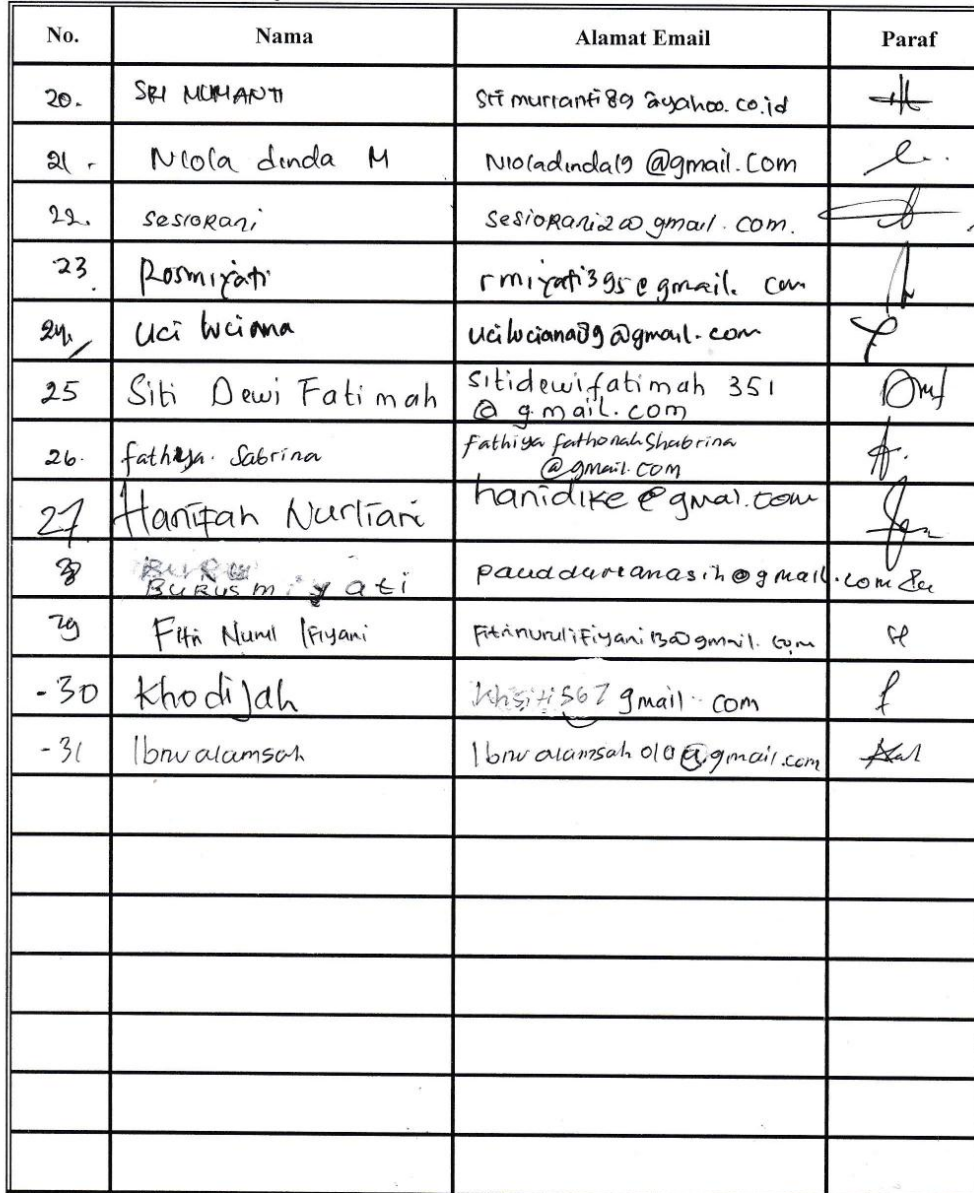 No. Nama Alamat Email Paraf
20. SRI MURIANTI srimurianti89@yahoo.co.id
21. Niola dinda M Nioladinda19@gmail.com
22. sesiorani sesiorani20@gmail.com.
23. Rosmiyati rmiyati395@gmail.com
24. Uci luciana uciluciana89@gmail.com
25 Siti Dewi Fatimah sitidewifatimah 351
@gmail.com
26. fathiya. Sabrina fathiya fathonah Shabrina
@gmail.com
27 Hanifah Nurliani hanidike@gmai.com
BURUS miyati pauddureanasih@gmail.com
29 Fitri Nurul Ifiyani Fitrinurulifiyani13@gmail.com
-30 Khodijah khsiti567 gmail com
-31 Ibnu alamsah Ibnu alamsah010@gmail.com